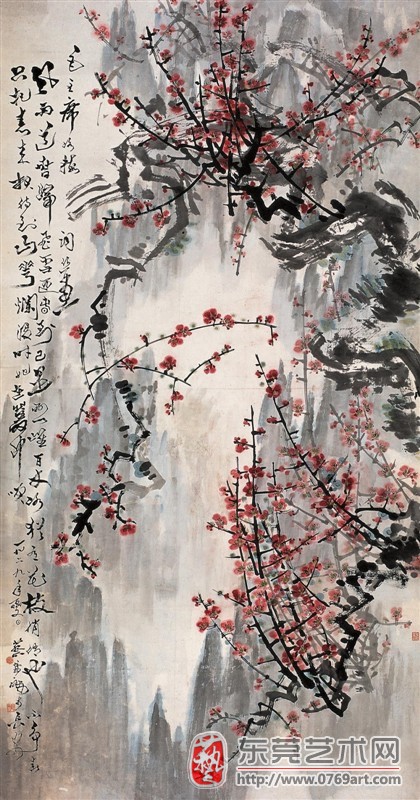 毛主席咏梅
詞意
風雨送春歸飛雪迎春到已是懸崖百丈冰猶有花枝俏俏也不爭春
只把春來報待到山花爛漫時她在叢中笑
东莞艺术网
www.0769art.com